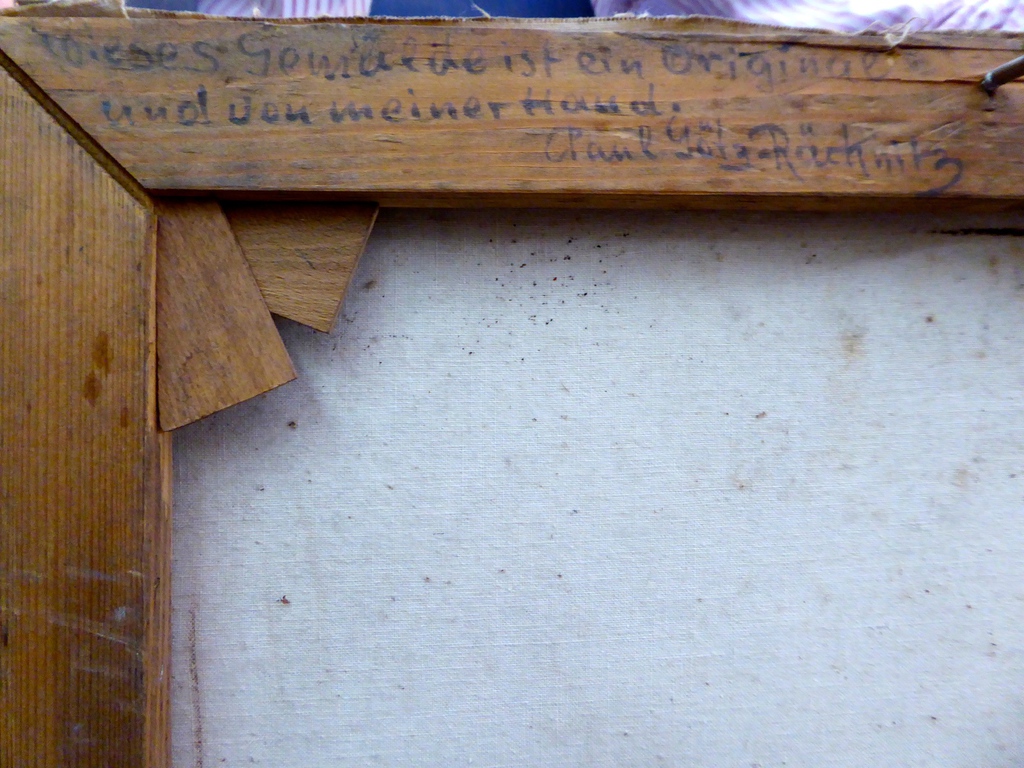 Dieses Gemälde ist ein Original
und von meiner Hand.
Paul Götz-Räcknitz